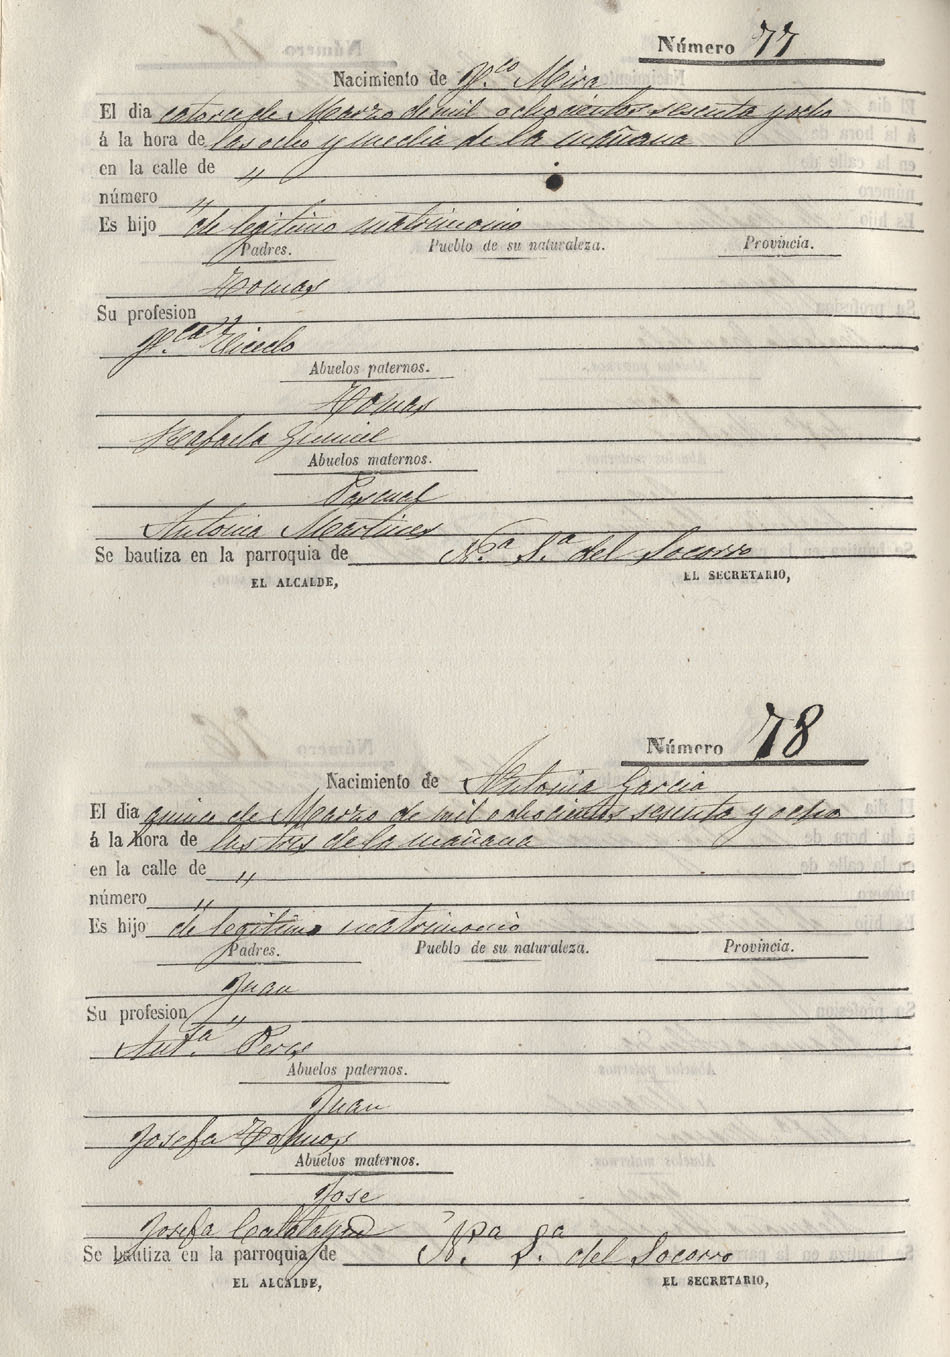 Número 77
Nacimiento de Fco Mira
El dia catorce de Marzo de mil ochocientos sesenta y ocho
á la hora de las ocho y media de la mañana
en la calle de "
número "
Es hijo de legitimo matrimonio
Padres. Pueblo de su naturaleza. Provincia.
Tomas
Su profesion "
Fca Vicedo
Abuelos paternos.
Tomas
Rafaela
Abuelos maternos.
Pascual
Antonia Martines
Se bautiza en la parroquia de Na. Sa. del Socorro
EL ALCALDE, EL SECRETARIO,
Número 78
Nacimiento de Antonia Garcia
El dia quince de Marzo de mil ochocientos sesenta y ocho
á la hora de las tres de la mañana
en la calle de "
número "
Es hijo de legitimo matrimonio
Padres. Pueblo de su naturaleza. Provincia.
Juan
Su profesion "
Anta. Peres
Abuelos paternos.
Juan
Josefa Tomas
Abuelos maternos.
Jose
Josefa Calatayud
Se bautiza en la parroquia de Na. Sa. del Socorro
EL ALCALDE, EL SECRETARIO,